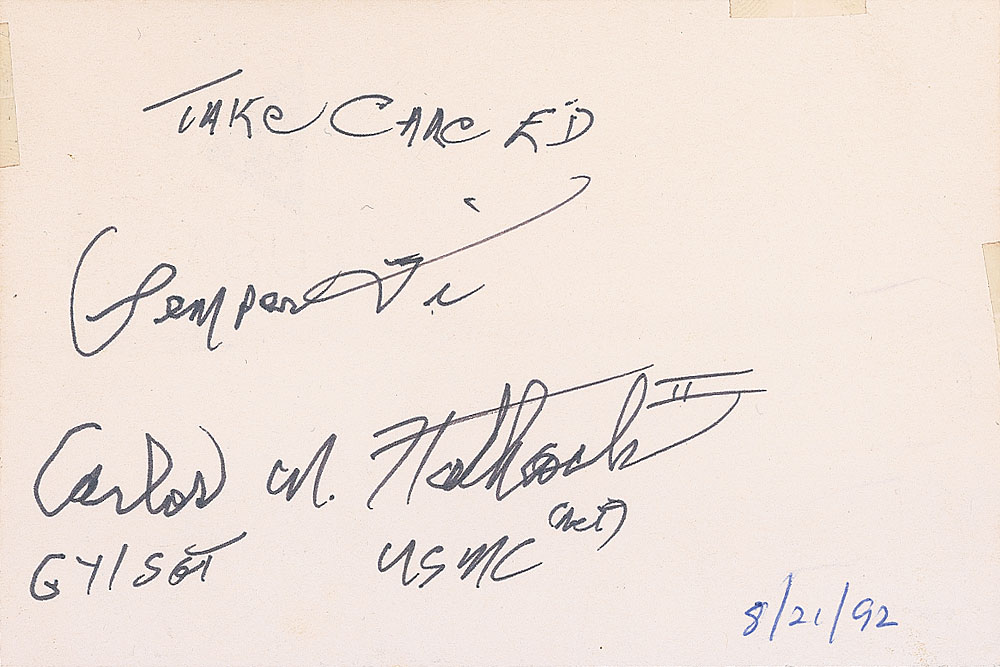 TAKE CARE ED
Semper Fi
Carlos N. Hathcock II
GY/SGT USMC (RET)
8/21/92